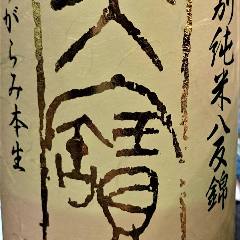 別純米八反錦
大寶
がらみ本生